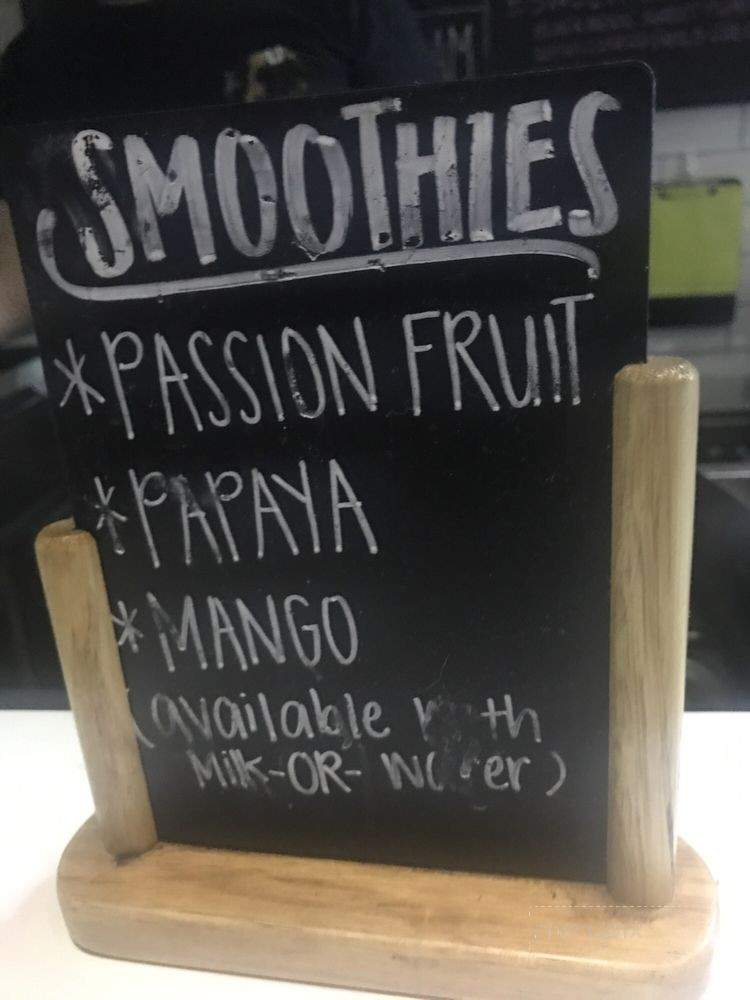 SMOOTHIES
*PASSION FRUIT
*PAPAYA
*MANGO
(available with
Milk-OR-Water)